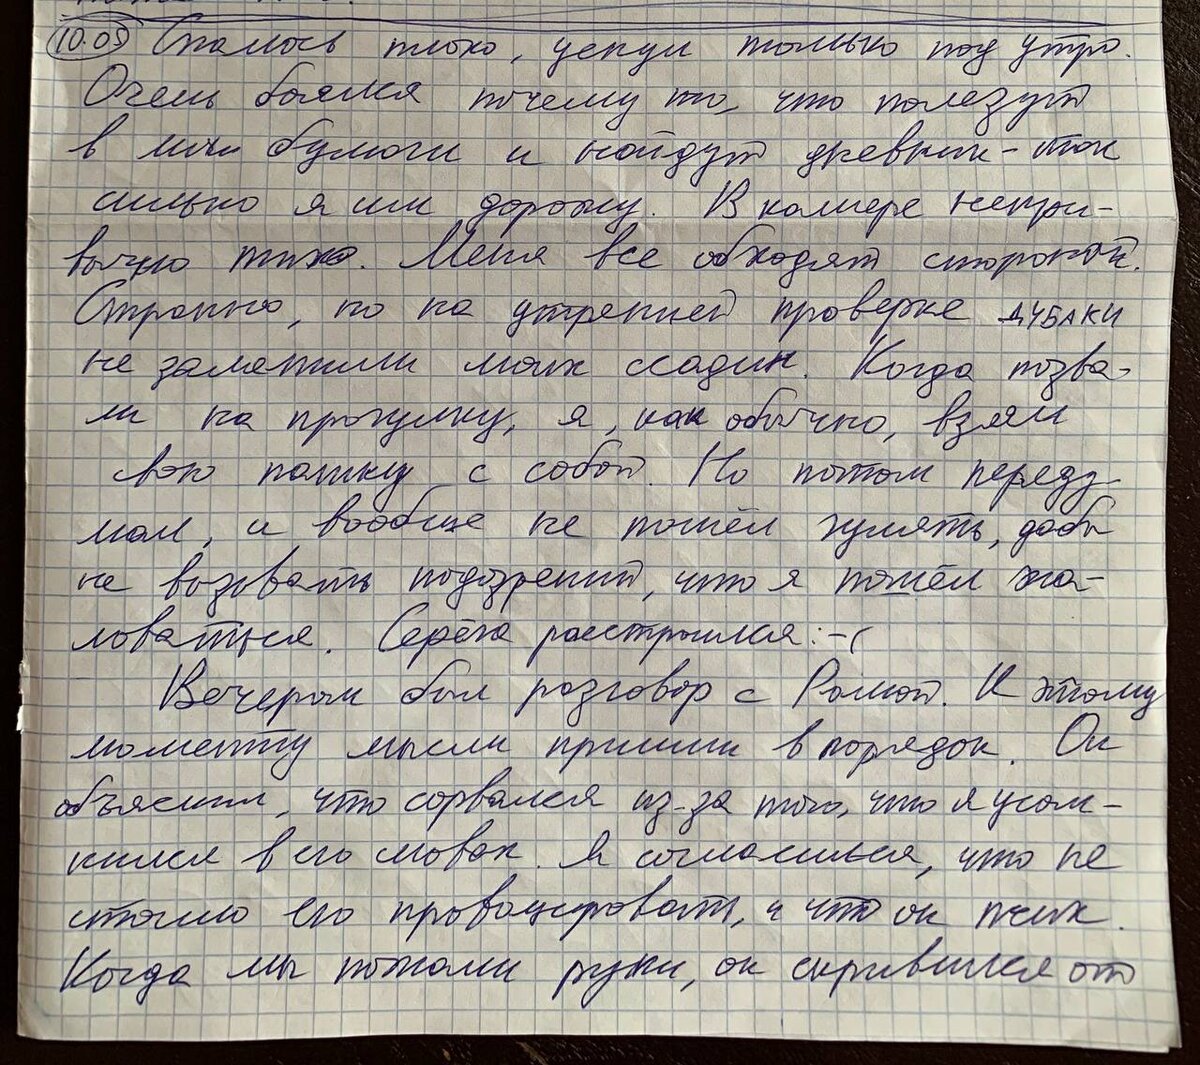 10.05 Спалось плохо, уснул только под утро.
Очень боялся почему то, что полезут
в мои бумаги и найдут дневник - так
сильно я им дорожу. В камере непри-
вычно тихо. Меня все обходят стороной.
Странно, но на утренней проверке ДУБАКИ
не заметили моих ссадин. Когда позва-
ли на прогулку, я, как обычно, взял
свою папку с собой. Но потом переду-
мал, и вообще не пошёл гулять, дабы
не вызывать подозрений, что я пошёл жа-
ловаться. Серёга расстроился :-(
Вечером был разговор с Ромой. К этому
моменту мысли пришли в порядок. Он
объяснил, что сорвался из-за того, что я усом-
нился в его словах. Я согласился, что не
стоило его провоцировать, и что он псих.
Когда мы пожали руки, он скривился от